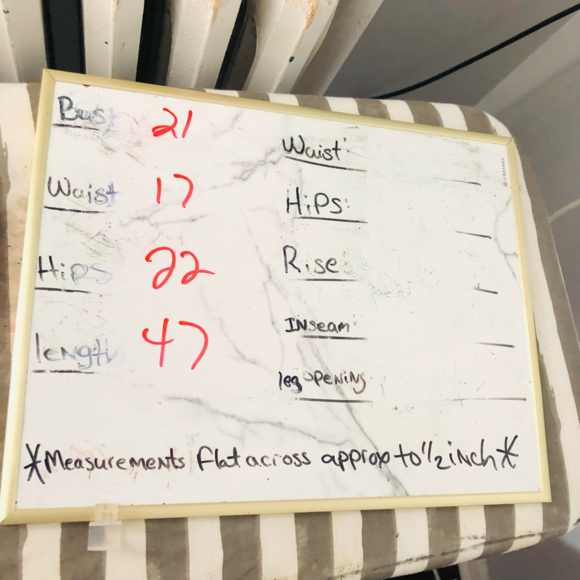 Bust 21
Waist 17
Hips 22
length 47
Waist
Hips
Rise
Inseam
leg opening
*Measurements flat across approx to 1/2 inch*